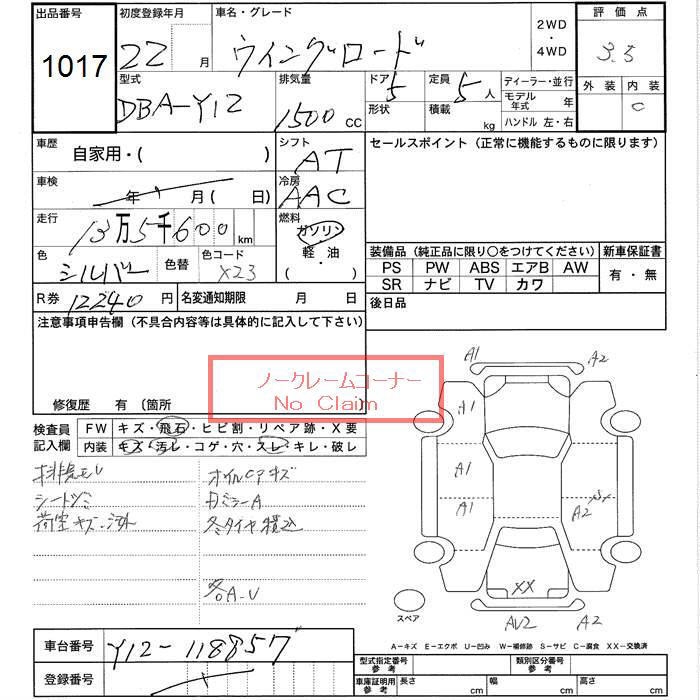 出品番号 初度登録年月 車名・グレード 2WD ・ 4WD 評価点
1017 22 月 ウイングロード 3.5
型式 排気量 ドア 形状 定員 積載 ディーラー・並行 外装 内装
DBA-Y12 1500 CC 5 5 人 kg モデル年式 年 C
ハンドル 左・右
車歴 自家用・( ) シフト AT セールスポイント(正常に機能するものに限ります)
車検 年 月( 日) 冷房 AAC
走行 13万5千600 km 燃料 ガソリン
色 シルバー 色替 色コード X23 軽・油 ( )
装備品(純正品に限り○をつけてください) 新車保証書
PS PW ABS エアB AW 有・無
SR ナビ TV カワ
R券 12240 円 名変通知期限 月 日 後日品
注意事項申告欄(不具合内容等は具体的に記入して下さい)
ノークレームコーナー
No Claim
修復歴 有 〔箇所 〕
検査員記入欄 FW キズ・飛石・ヒビ割・リペア跡・X要
内装 キズ・汚レ・コゲ・穴・スレ・キレ・破レ
シートシミ カミラーA
荷室キズ・汚れ 冬タイヤ積込
各A-U
A1 A2
A1
A1
A1 A2
XX
AU2 A2
スペア
A-キズ E-エクボ U-凹み W-補修跡 S-サビ C-腐食 XX-交換済
車台番号 Y12-118857
登録番号
型式指定番号 参考 類別区分番号 参考
車庫証明用 参考 長さ cm 幅 cm 高さ cm